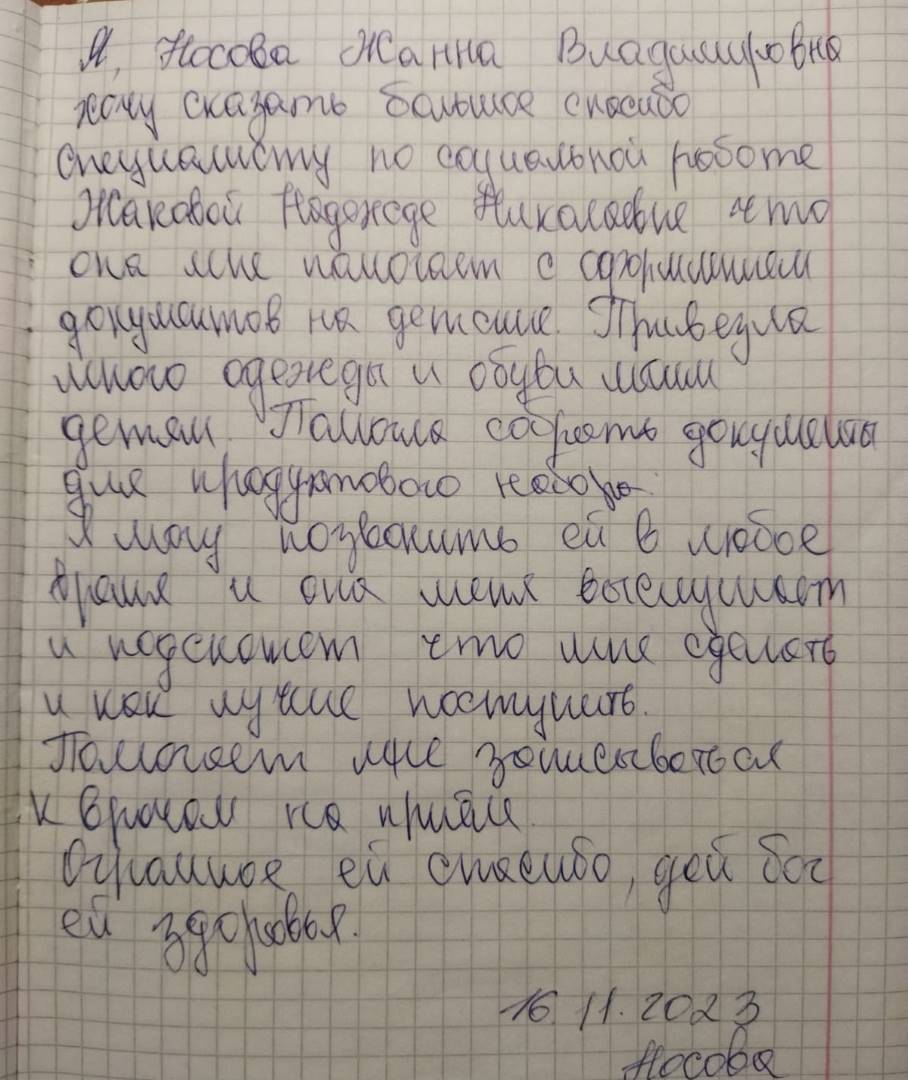 Я, Носова Жанна Владимировна
хочу сказать большое спасибо
специалисту по социальной работе
Жаковой Надежде Николаевне что
она мне помогает с оформлением
документов на детские. Привезла
много одежды и обуви моим
детям. Помогла собрать документы
для продуктового набора.
Я могу позвонить ей в любое
время и она меня выслушает
и подскажет что мне сделать
и как лучше поступить.
Помогает мне записываться
к врачам на приём.
Огромное ей спасибо, дай бог
ей здоровья.
16.11.2023
Носова